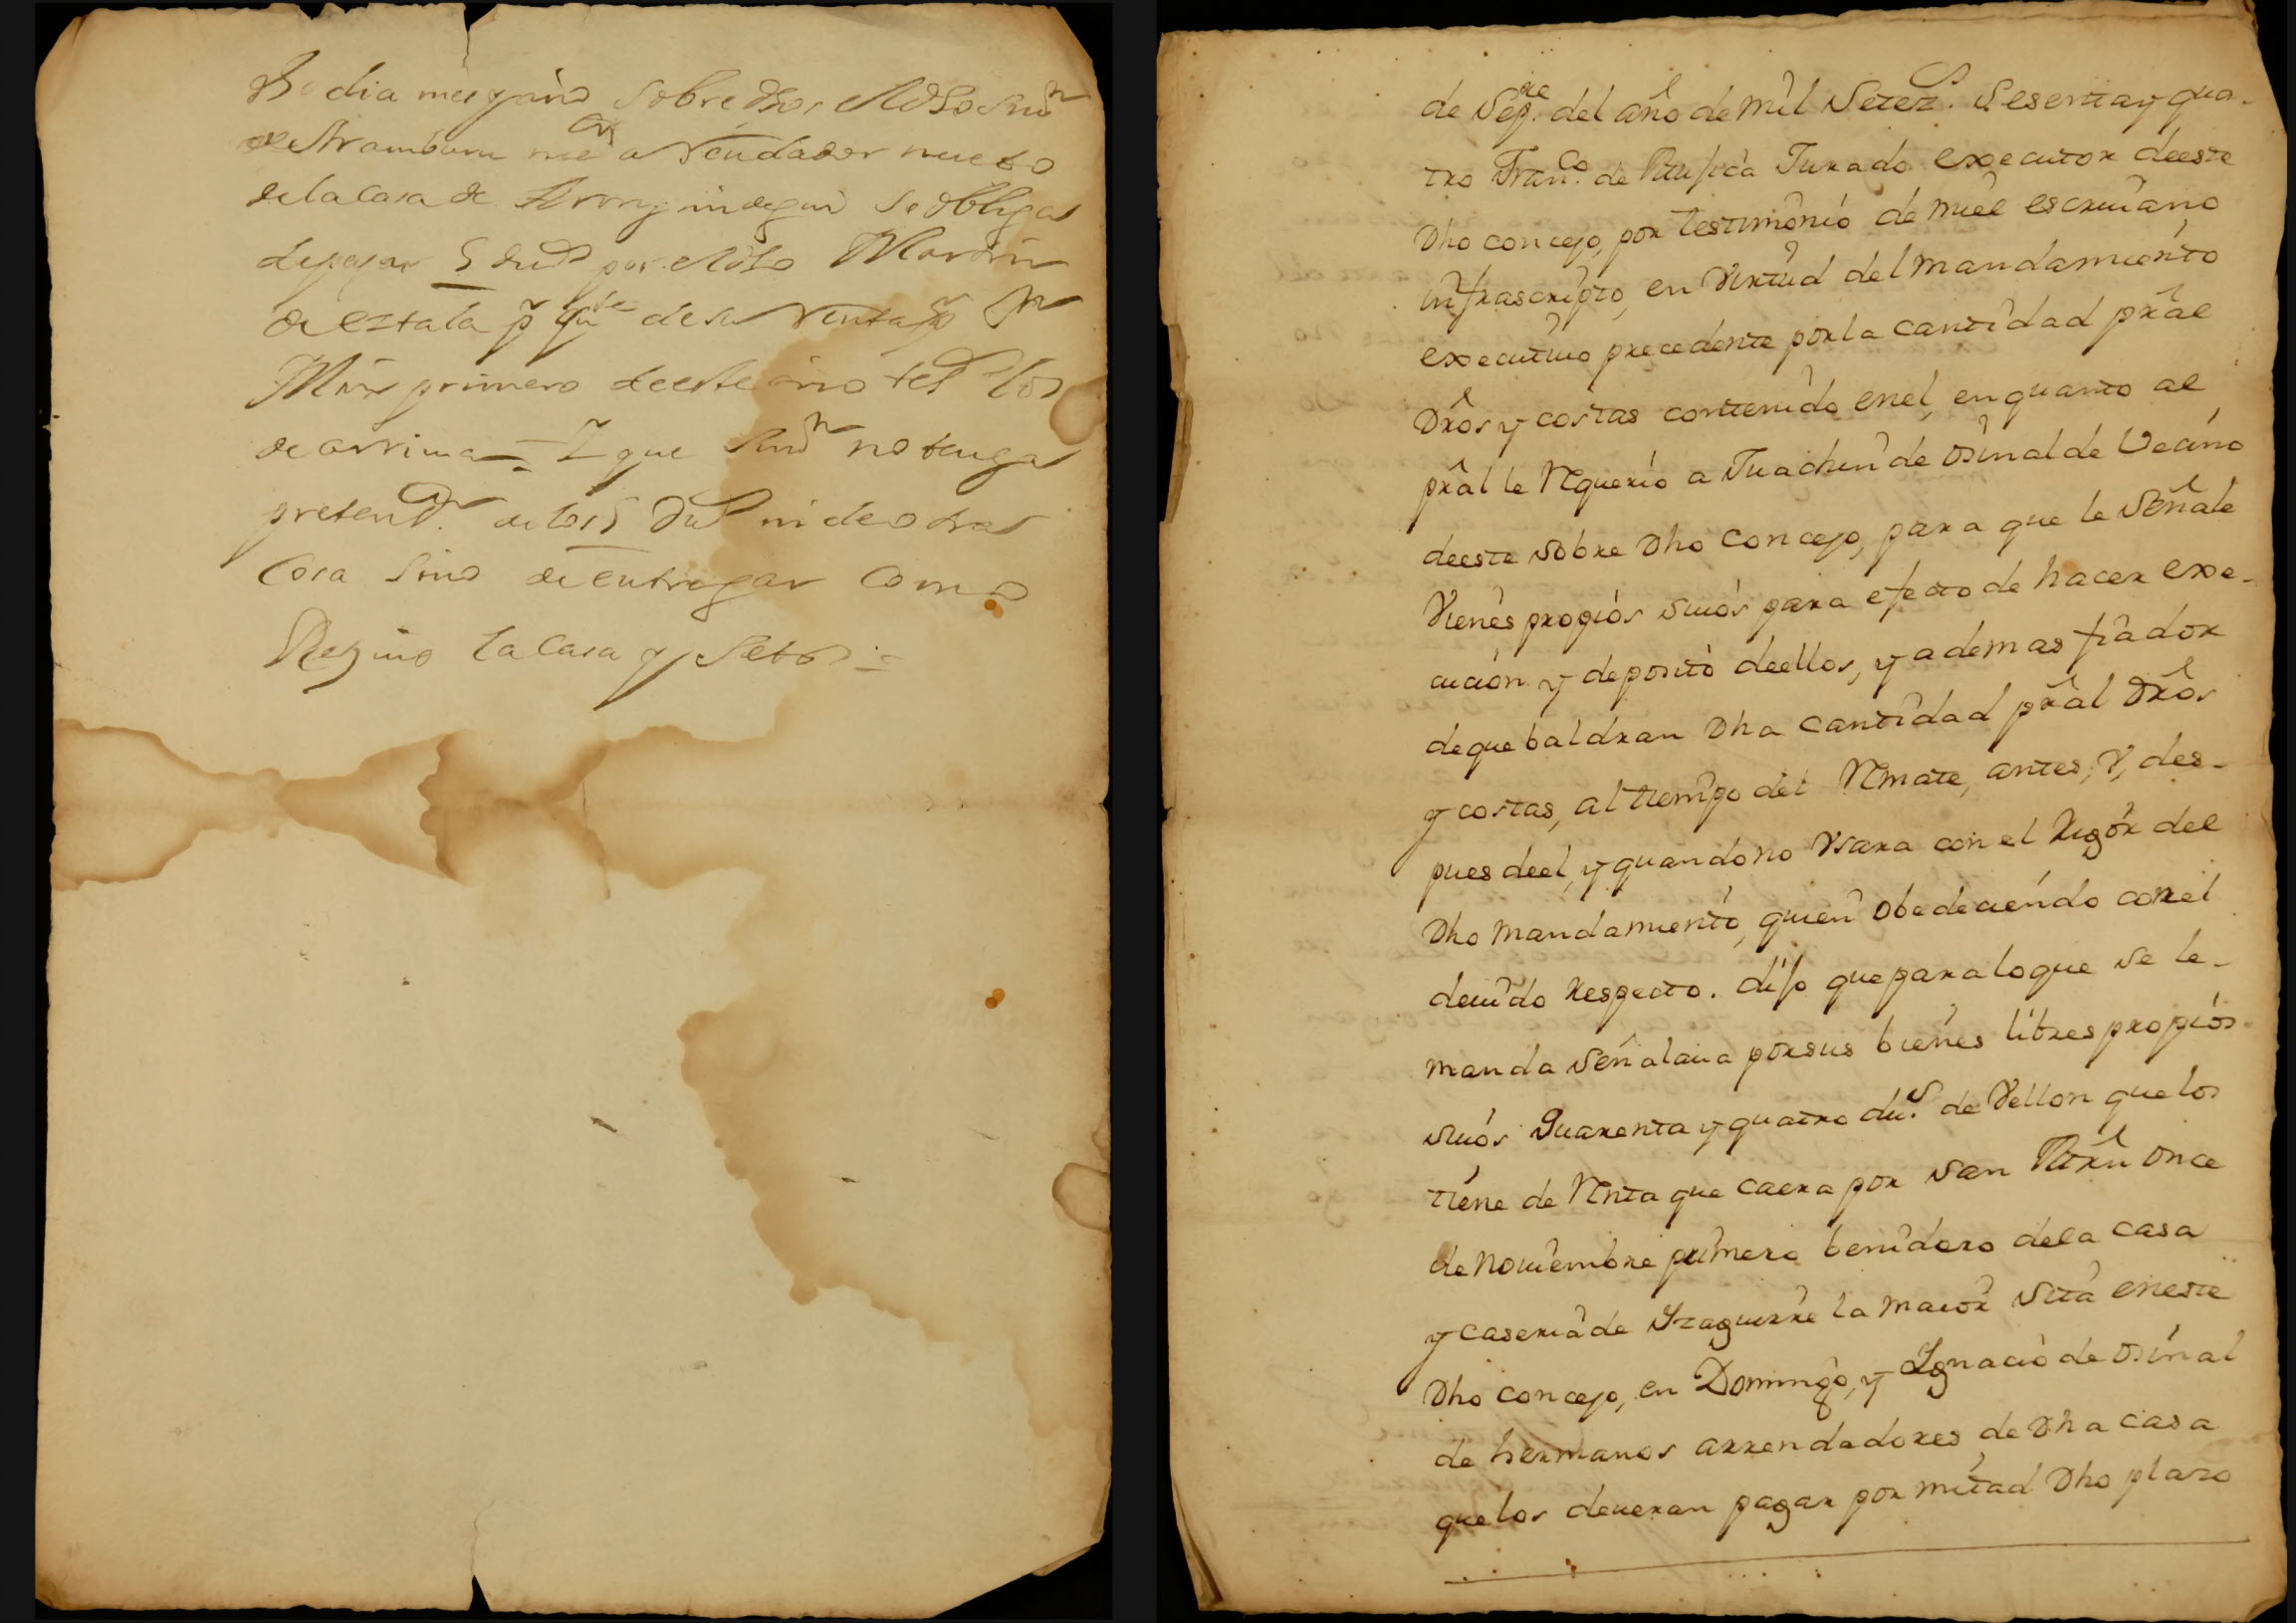 dia mes y año sobre dhos el dho Juan
de Aramburu arrendador nuebo
de la casa de se obliga
de pagar 5 duds por el dho Martin
de eztala p de su Renta p
Mrñ primero de este año
de arriua = Y que Juan no tenga
pretens.n de los 5 Dus ni de otra
cosa sino de entregar como
Reziuio la casa y Setos =
de Sepre. del año de mil Setezs. Sesenta y qua-
tro Franco. de Jurado executor de este
Dho concejo, por testimonio de mi el escriuano
infrascripto, en Virtud del mandamiento
executiuo precedente por la cantidad pral
Dros y costas contenido en el, en quanto al
pral le Requerio a Juachin de Osinalde Vecino
de este sobre Dho Concejo, para que le Señale
Vienes propios suios para efecto de hacer exe-
cucion y deposito de ellos, y ademas fiador
de que baldran Dha cantidad pral Dros
y costas, al tiempo del Remate, antes, Y, des-
pues de el, y quando no Vsara con el Rigor del
Dho mandamiento, quien obedeciendo con el
deuido Respecto. dijo que para lo que se le-
manda Señalaua por sus bienes libres propios
suios Quarenta y quatro dus. de Vellon que los
tiene de Renta que caera por San Mrñ once
de Nouiembre primero benidero de la casa
y caseria de Yzaguirre la maior Sita en este
Dho concejo, en Domingo, y Ygnacio de Osinal
de hermanos arrendadores de Dha casa
que los deueran pagar por mitad Dho plazo